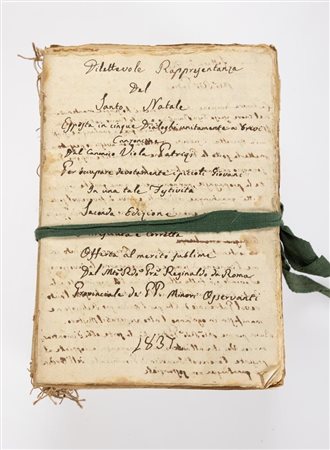 Dilettevole Rappresentanza
Del
Santo Natale
Esposta in cinque Dialoghi unitamente a brevi
Canzoncine
Dal Canonico Viola Patrizj
Per occupare devotamente i piccoli Giovani
In una tale Festività
Seconda Edizione
e corretta
Offerta al merito sublime
Del Mto Rdo Pre Reginaldo da Roma
Provinciale de PP. Minori Osservanti
1837